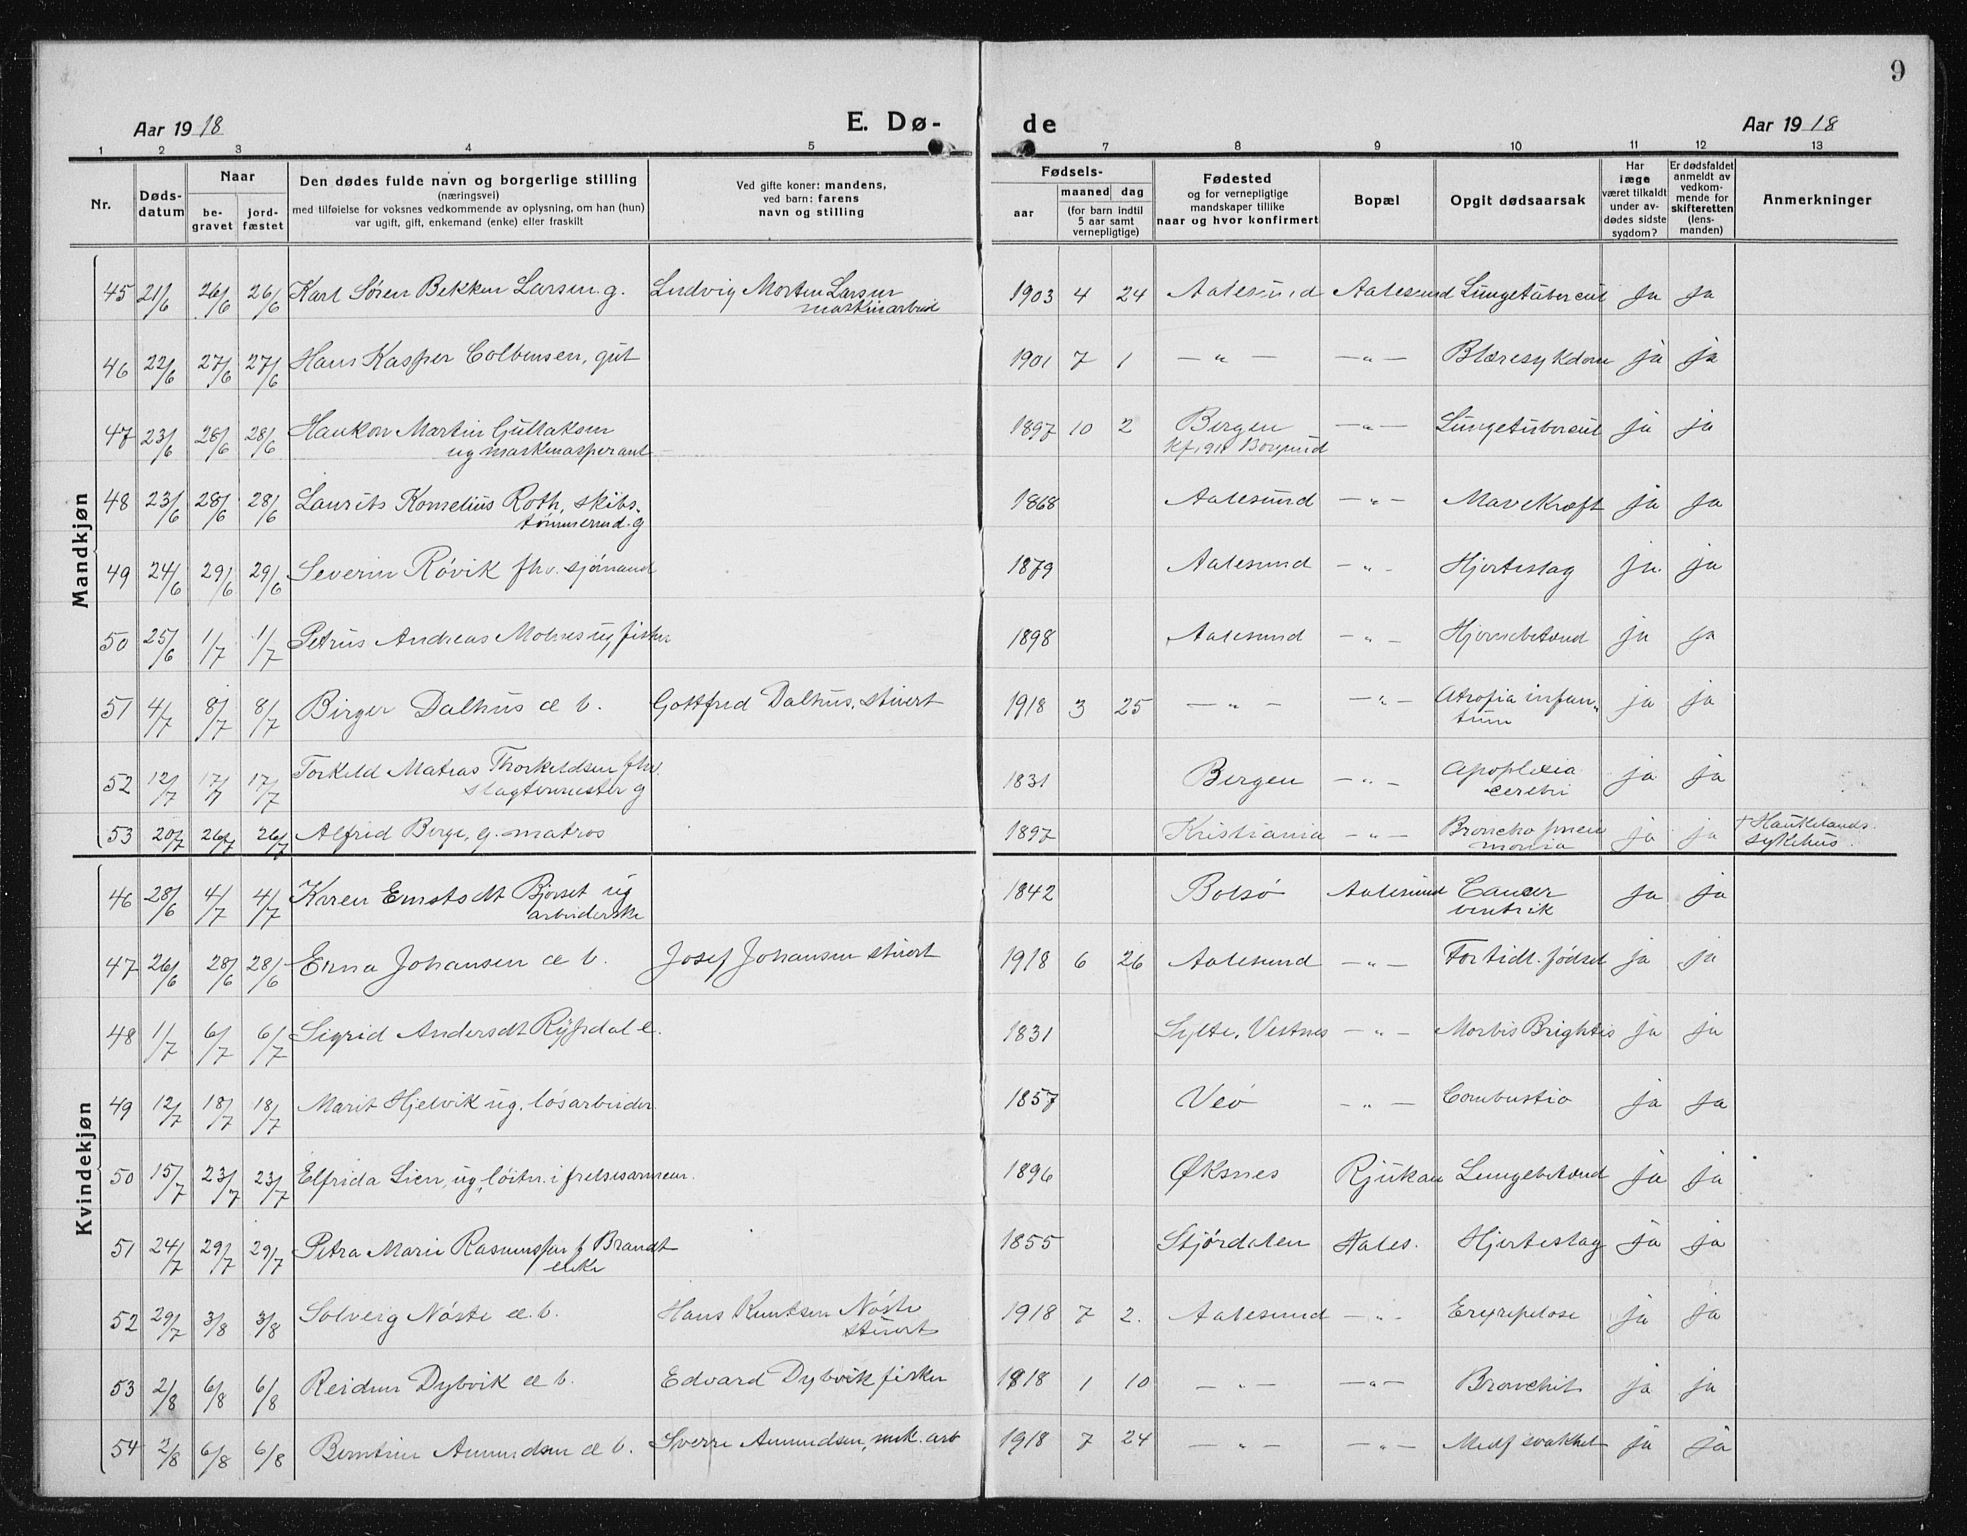 9
Aar 1918 E. Dø- de Aar 1918
1 2 3 4 5 7 8 9 10 11 12 13
Nr. Døds-datum Naar be-gravet jord-fæstet Den dødes fulde navn og borgerlige stilling (næringsvei) med tilføielse for voksnes vedkommende av oplysning, om han (hun) var ugift, gift, enkemand (enke) eller fraskilt Ved gifte koner: mandens, ved barn: farens navn og stilling Fødsels- aar maaned dag (for barn indtil 5 aar samt vernepligtige) Fødested og for vernepligtige mandskaper tillike naar og hvor konfirmert Bopæl Opgit dødsaarsak Har læge været tilkaldt under av-dødes sidste sygdom? Er dødsfaldet anmeldt av vedkom-mende for skifteretten (lens-manden) Anmerkninger
Mandkjøn
45 21/6 26/6 26/6 Karl Søren Bekken Larsen. g. Ludvig Morten Larsen 1903 4 24 Aalesund Aalesund Lungetubercul ja ja
maskinarbeid
46 22/6 27/6 27/6 Hans Kasper Colbensen, gut 1901 7 1 — " — — " — Blæresykdom ja ja
47 23/6 28/6 28/6 Haakon Martin Gullaksen 1897 10 2 Bergen — " — Lungetubercul ja ja
ug maskinasperant Borgund
48 23/6 28/6 28/6 Laurits Kornelius Roth, skibs- 1868 Aalesund — " — Mavekræft ja ja
tømmermd. g
49 24/6 29/6 29/6 Severin Røvik fhv. sjømand 1879 Aalesund — " — Hjerteslag ja ja
50 25/6 1/7 1/7 Petrus Andreas Molnes ug fisker 1898 Aalesund — " — Hjernebetænd ja ja
51 4/7 8/7 8/7 Birger Dalhus æ b. Gottfred Dalhus, stuert 1918 3 25 — " — — " — Atrofia infan- ja ja
tum
52 12/7 17/7 17/7 Torkild Matias Thorkeldsen fhv. 1831 Bergen — " — Apoplexia ja ja
slagtermester g cerebri
53 20/7 26/7 26/7 Alfred Berge, g. matros 1897 Kristiania — " — Broncho pneu ja ja † Haukelands.
monia sykehus.
Kvindekjøn
46 28/6 4/7 4/7 Karen Ernstsdt Bjørset ug 1842 Bolsø Aalesund Cancer ja ja
arbeiderske ventrik
47 26/6 28/6 28/6 Erna Johansen æ b. Josef Johansen stuert 1918 6 26 Aalesund — " — Fortidl. fødsel ja ja
48 1/7 6/7 6/7 Sigrid Andersdt Rypdal e. 1831 Sylte, Vestnes — " — Morbis Brightis ja ja
49 12/7 18/7 18/7 Marit Hjelvik ug. løsarbeider 1857 Veø — " — Combustio ja ja
50 15/7 23/7 23/7 Elfrida Lien, ug, løitn. i frelsesarmeen. 1896 Øksnes Rjukan Lungebetænd ja ja
51 24/7 29/7 29/7 Petra Marie Rasmussen f Brandt 1855 Stjørdalen Aales. Hjerteslag ja ja
enke
52 29/7 3/8 3/8 Solveig Nøste æ. b. Hans Knutsen Nøste 1918 7 2. Aalesund — " — Erysipelose ja ja
stuert
53 2/8 6/8 6/8 Reidun Dybvik æ b. Edvard Dybvik fisker 1918 1 10 — " — — " — Bronchit ja ja
54 2/8 6/8 6/8 Berntine Amundsen æ b. Sverre Amundsen, mek. arb 1918 7 24 — " — — " — Medf svakhet ja ja